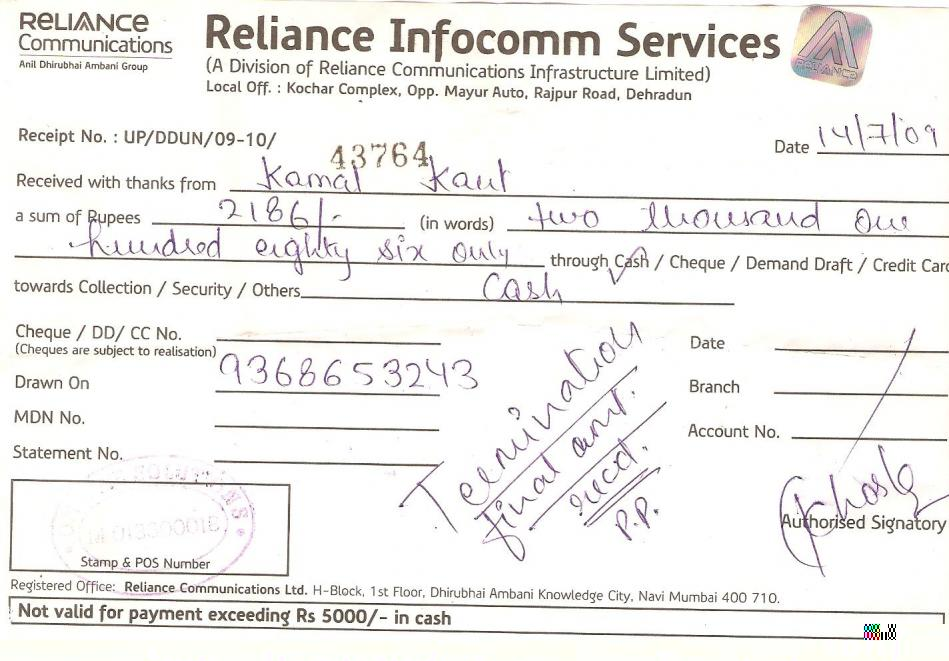 RELIANCE
Communications
Anil Dhirubhai Ambani Group
Reliance Infocomm Services
(A Division of Reliance Communications Infrastructure Limited)
Local Off. : Kochar Complex, Opp. Mayur Auto, Rajpur Road, Dehradun
RELIANCE
Receipt No. : UP/DDUN/09-10/ 43764
Date 14/7/09
Received with thanks from Kamal Kant
a sum of Rupees 2186/- (in words) two thousand one
hundred eighty six only through Cash / Cheque / Demand Draft / Credit Card
towards Collection / Security / Others Cash
Cheque / DD/ CC No.
(Cheques are subject to realisation)
Drawn On 9368653243
MDN No.
Statement No.
Termination
final amt.
recd.
P.P.
Date
Branch
Account No.
Authorised Signatory
Stamp & POS Number
Registered Office: Reliance Communications Ltd. H-Block, 1st Floor, Dhirubhai Ambani Knowledge City, Navi Mumbai 400 710.
Not valid for payment exceeding Rs 5000/- in cash